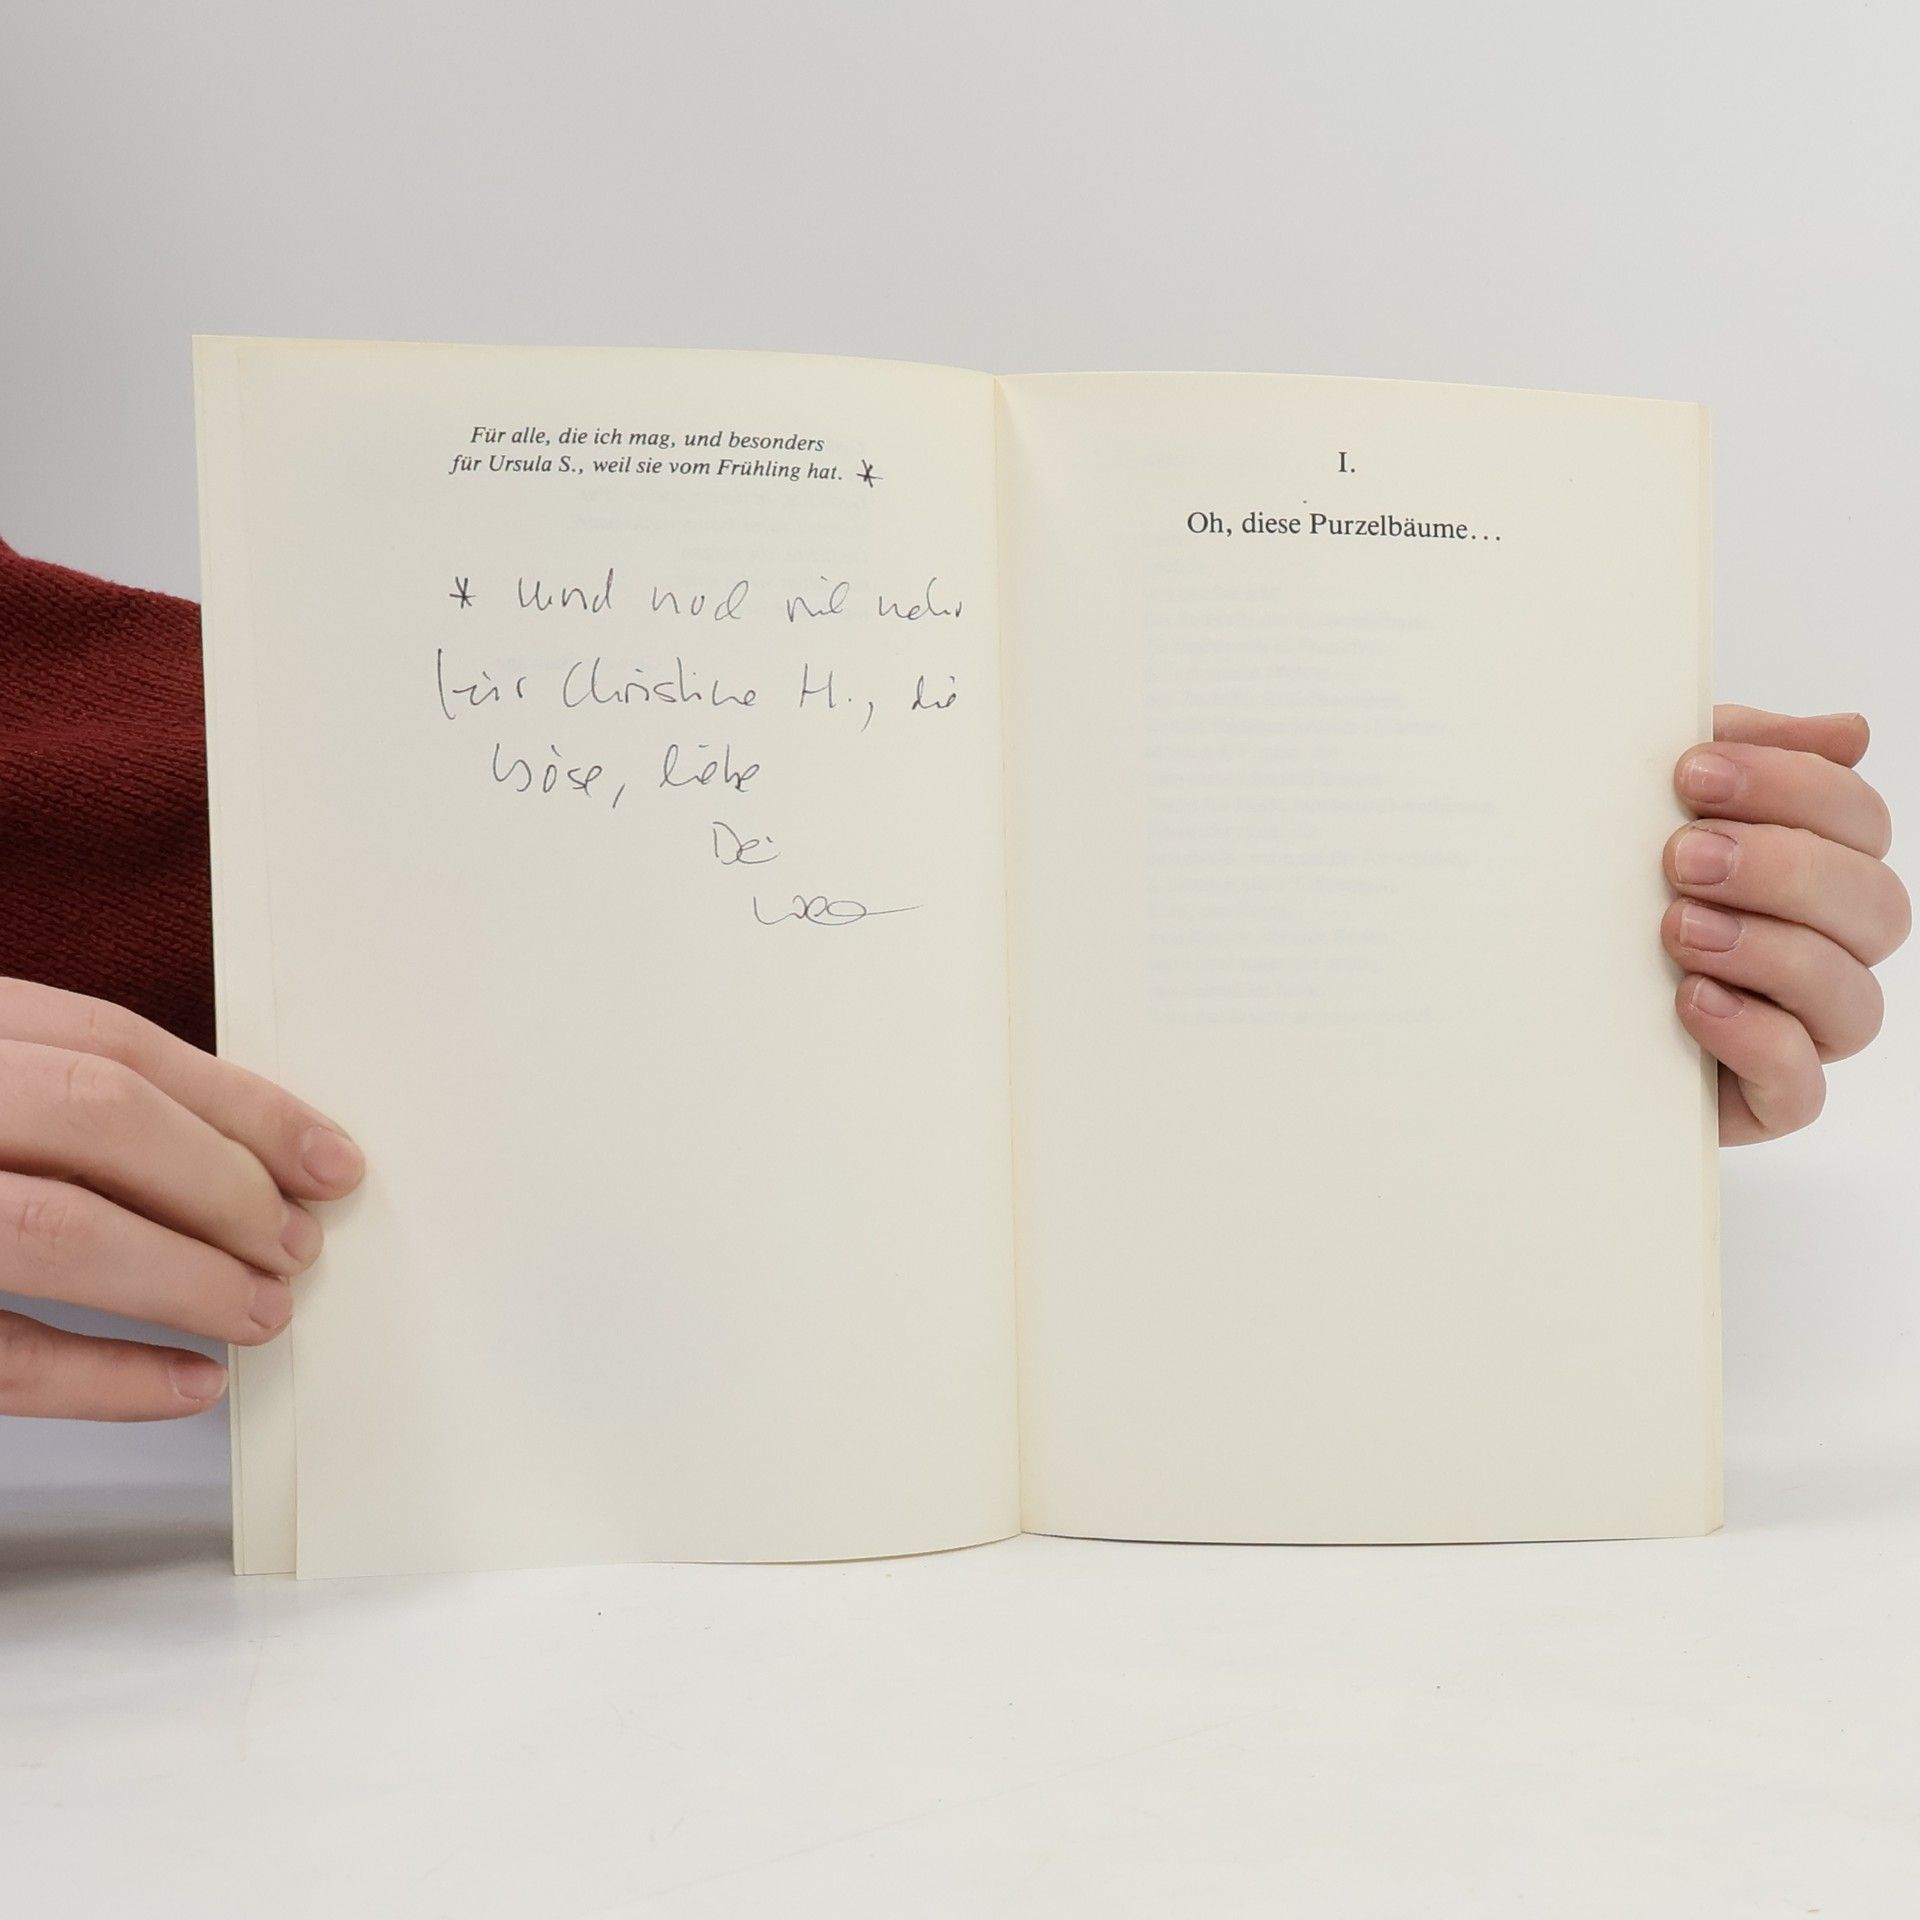 Für alle, die ich mag, und besonders
für Ursula S., weil sie vom Frühling hat. *
* Und noch viel mehr
für Christine H., die
böse, liebe
Dei
I.
Oh, diese Purzelbäume...